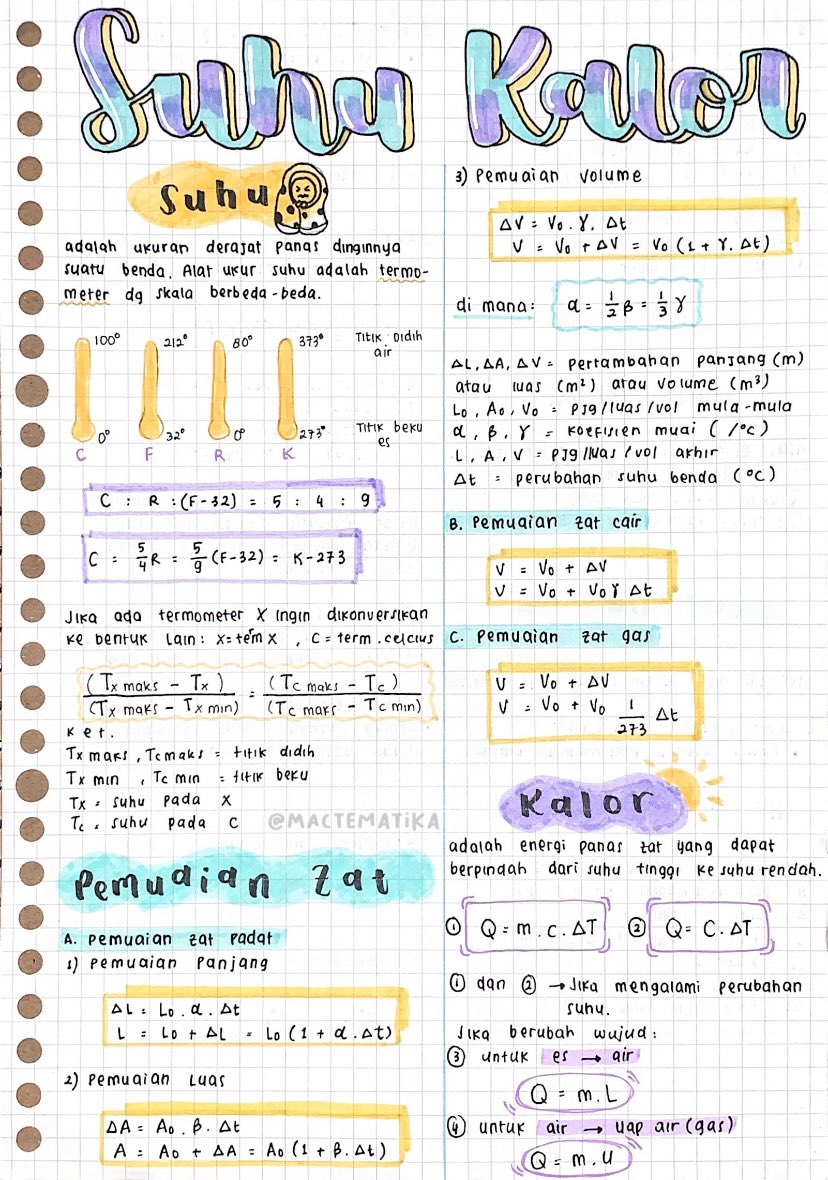 Suhu Kalor
Suhu
adalah ukuran derajat panas dinginnya
suatu benda. Alat ukur suhu adalah termo-
meter dg skala berbeda-beda.
100° 212° 80° 373° Titik didih
air
0° 32° 0° 273° Titik beku
es
C F R K
C : R : (F-32) = 5 : 4 : 9
C = 5/4 R = 5/9 (F-32) = K-273
Jika ada termometer X ingin dikonversikan
ke bentuk lain: X = term X , C = term. celcius
(Tx maks - Tx) / (Tx maks - Tx min) = (Tc maks - Tc) / (Tc maks - Tc min)
Ket.
Tx maks, Tc maks = titik didih
Tx min , Tc min = titik beku
Tx = suhu pada X
Tc = suhu pada C
@MACTEMATIKA
Pemuaian Zat
A. Pemuaian zat padat
1) Pemuaian Panjang
ΔL = L₀ . α . Δt
L = L₀ + ΔL = L₀ (1 + α . Δt)
2) Pemuaian Luas
ΔA = A₀ . β . Δt
A = A₀ + ΔA = A₀ (1 + β . Δt)
3) Pemuaian Volume
ΔV = V₀ . γ . Δt
V = V₀ + ΔV = V₀ (1 + γ . Δt)
di mana: α = 1/2 β = 1/3 γ
ΔL, ΔA, ΔV = pertambahan panjang (m)
atau luas (m²) atau volume (m³)
L₀, A₀, V₀ = pjg/luas/vol mula-mula
α, β, γ = koefisien muai ( /°c)
L, A, V = pjg/luas/vol akhir
Δt = perubahan suhu benda (°C)
B. Pemuaian zat cair
V = V₀ + ΔV
V = V₀ + V₀ γ Δt
C. Pemuaian zat gas
V = V₀ + ΔV
V = V₀ + V₀ 1/273 Δt
Kalor
adalah energi panas zat yang dapat
berpindah dari suhu tinggi ke suhu rendah.
① Q = m . c . ΔT ② Q = C . ΔT
① dan ② → Jika mengalami perubahan
suhu.
Jika berubah wujud:
③ untuk es → air
Q = m . L
④ untuk air → uap air (gas)
Q = m . U